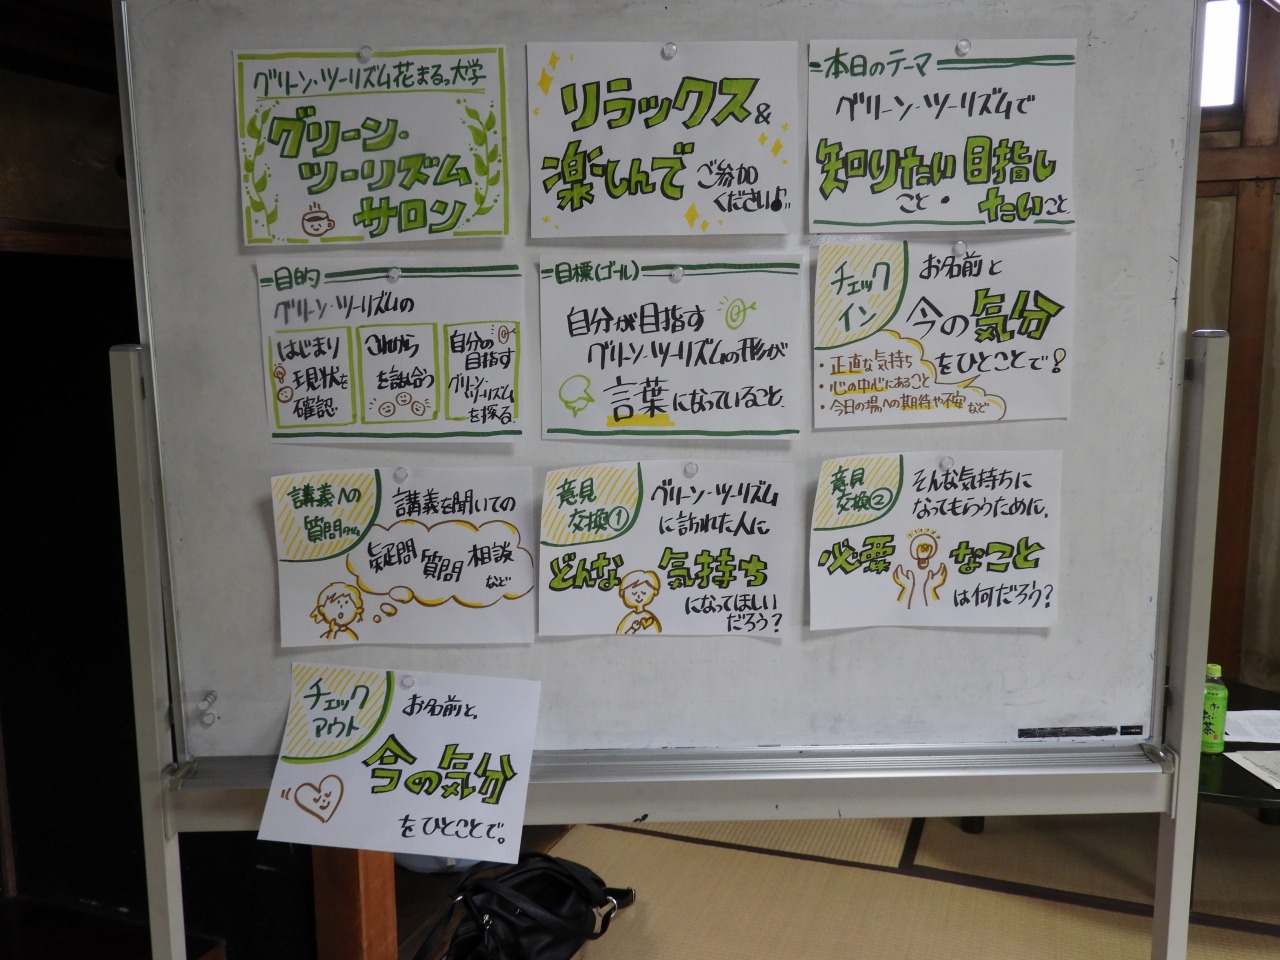 グリーン・ツーリズム花まるっ大学
グリーン・
ツーリズム
サロン
リラックス&
楽しんで
ご参加
ください♪
本日のテーマ
グリーン・ツーリズムで
知りたい
こと・
目指し
たいこと
目的
グリーン・ツーリズムの
はじまり
現状を
確認
これから
を話し合う
自分の
目指す
グリーン・
ツーリズム
を探る
目標(ゴール)
自分が目指す
グリーン・ツーリズムの形が
言葉になっていること
チェック
イン
お名前と
今の気分
をひとことで!
・正直な気持ち
・心の中心にあること
・今日の場への期待や不安など
講義への
質問タイム
講義を聞いての
疑問
質問
相談
など
意見
交換①
グリーン・ツーリズム
に訪れた人に
どんな気持ち
になってほしい
だろう?
意見
交換②
そんな気持ちに
なってもらうために、
必要なこと
は何だろう?
チェック
アウト
お名前と、
今の気分
をひとことで。
お~いお茶